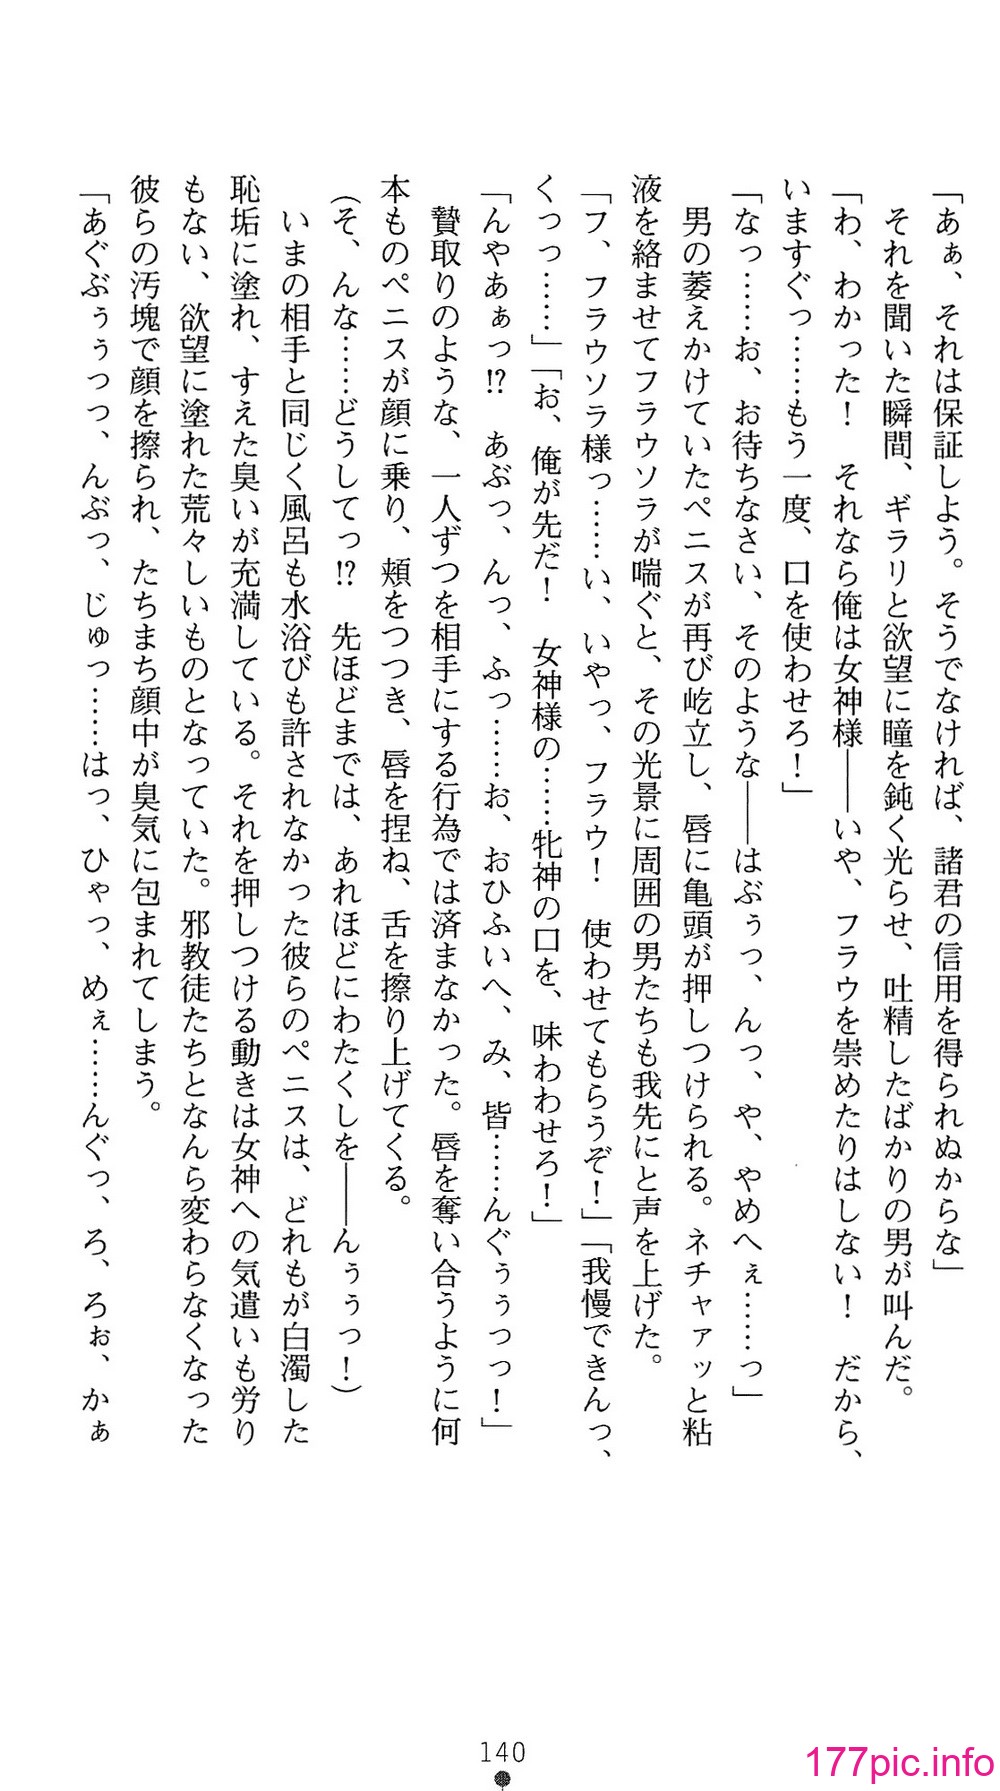 「あぁ、それは保証しよう。そうでなければ、諸君の信用を得られぬからな」
　それを聞いた瞬間、ギラリと欲望に瞳を鈍く光らせ、吐精したばかりの男が叫んだ。
「わ、わかった！　それなら俺は女神様――いや、フラウを崇めたりはしない！　だから、
いますぐっ……もう一度、口を使わせろ！」
「なっ……お、お待ちなさい、そのような――はぶぅっ、んっ、や、やめへぇ……っ」
　男の萎えかけていたペニスが再び屹立し、唇に亀頭が押しつけられる。ネチャァッと粘
液を絡ませてフラウソラが喘ぐと、その光景に周囲の男たちも我先にと声を上げた。
「フ、フラウソラ様っ……い、いやっ、フラウ！　使わせてもらうぞ！」「我慢できんっ、
くっっ……」「お、俺が先だ！　女神様の……牝神の口を、味わわせろ！」
「んやあぁっ!?　あぶっ、んっ、ふっ……お、おひふいへ、み、皆……んぐぅぅっっ！」
　贄取りのような、一人ずつを相手にする行為では済まなかった。唇を奪い合うように何
本ものペニスが顔に乗り、頬をつつき、唇を捏ね、舌を擦り上げてくる。
（そ、んな……どうしてっ!?　先ほどまでは、あれほどにわたくしを――んぅぅっ！）
　いまの相手と同じく風呂も水浴びも許されなかった彼らのペニスは、どれもが白濁した
恥垢に塗れ、すえた臭いが充満している。それを押しつける動きは女神への気遣いも労り
もない、欲望に塗れた荒々しいものとなっていた。邪教徒たちとなんら変わらなくなった
彼らの汚塊で顔を擦られ、たちまち顔中が臭気に包まれてしまう。
「あぐぶぅぅっっ、んぶっ、じゅっ……はっ、ひゃっ、めぇ……んぐっ、ろ、ろぉ、かぁ
140
177pic.info